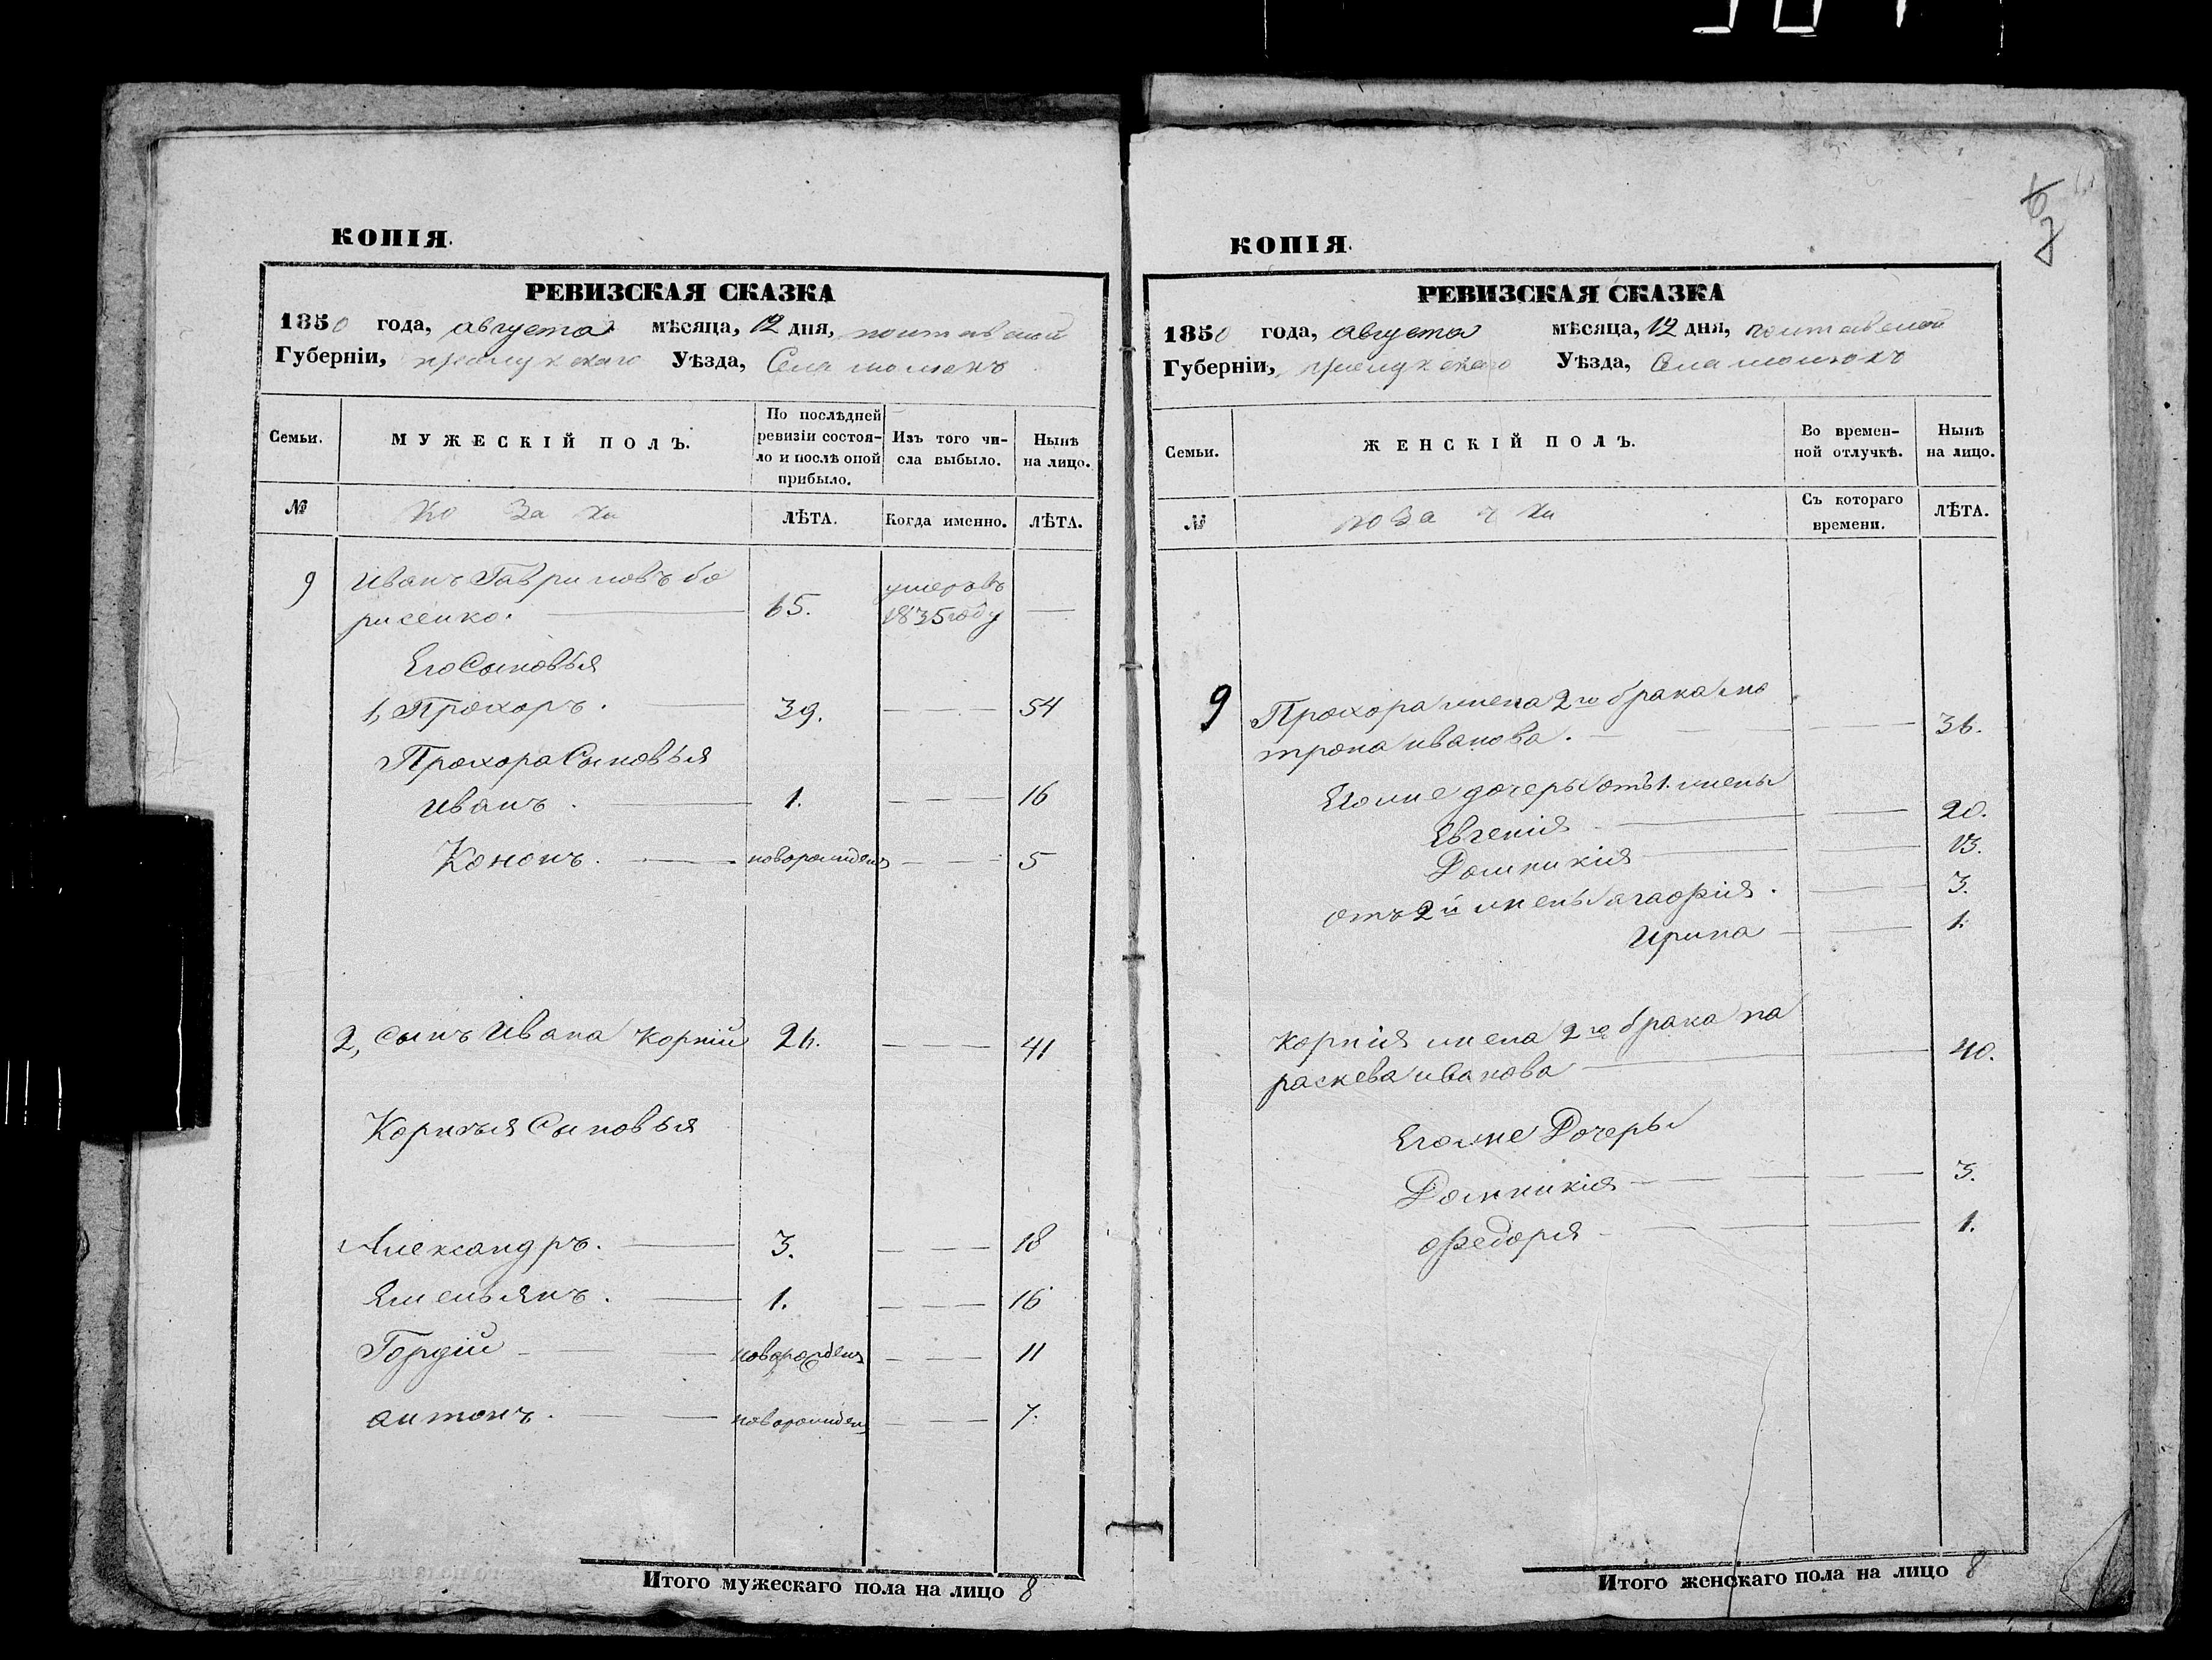 КОПІЯ.
РЕВИЗСКАЯ СКАЗКА
1850 года, августа мѣсяца, 12 дня, полтавской
Губерніи, прилукскаго Уѣзда, Села
Семьи. МУЖЕСКІЙ ПОЛЪ. По послѣдней ревизіи состоя- ло и послѣ оной прибыло. Изъ того чи- сла выбыло. Нынѣ на лицо.
№ Козаки ЛѢТА. Когда именно. ЛѢТА.
9 Иванъ Гавриловъ бо
рисенко. 65. умеръ въ 1835 году
Его Сыновья
1, Прохоръ. 39. 54
Прохора Сыновья
Иванъ. 1. 16
Кононъ. новорожденъ 5
2, сынъ Ивана Корній 26. 41
Корнѣя Сыновья
Александръ. 3. 18
Емельянъ. 1. 16
Гордій новорожденъ 11
антонъ. новорожденъ 7.
Итого мужескаго пола на лицо 8
КОПІЯ.
РЕВИЗСКАЯ СКАЗКА
1850 года, августа мѣсяца, 12 дня, полтавской
Губерніи, прилукскаго Уѣзда, Села
Семьи. ЖЕНСКІЙ ПОЛЪ. Во времен- ной отлучкѣ. Нынѣ на лицо.
№ козачки Съ котораго времени. ЛѢТА.
9 Прохора жена 2го брака ма
трона иванова. 36.
Его же дочеры отъ 1. жены
Евгенія 20.
Домникія 13.
отъ 2й жены агафія. 3.
Ирина 1.
Корнія жена 2го брака па
раскева иванова 40.
Его же Дочеры
Домникія 3.
Федорія 1.
Итого женскаго пола на лицо 8